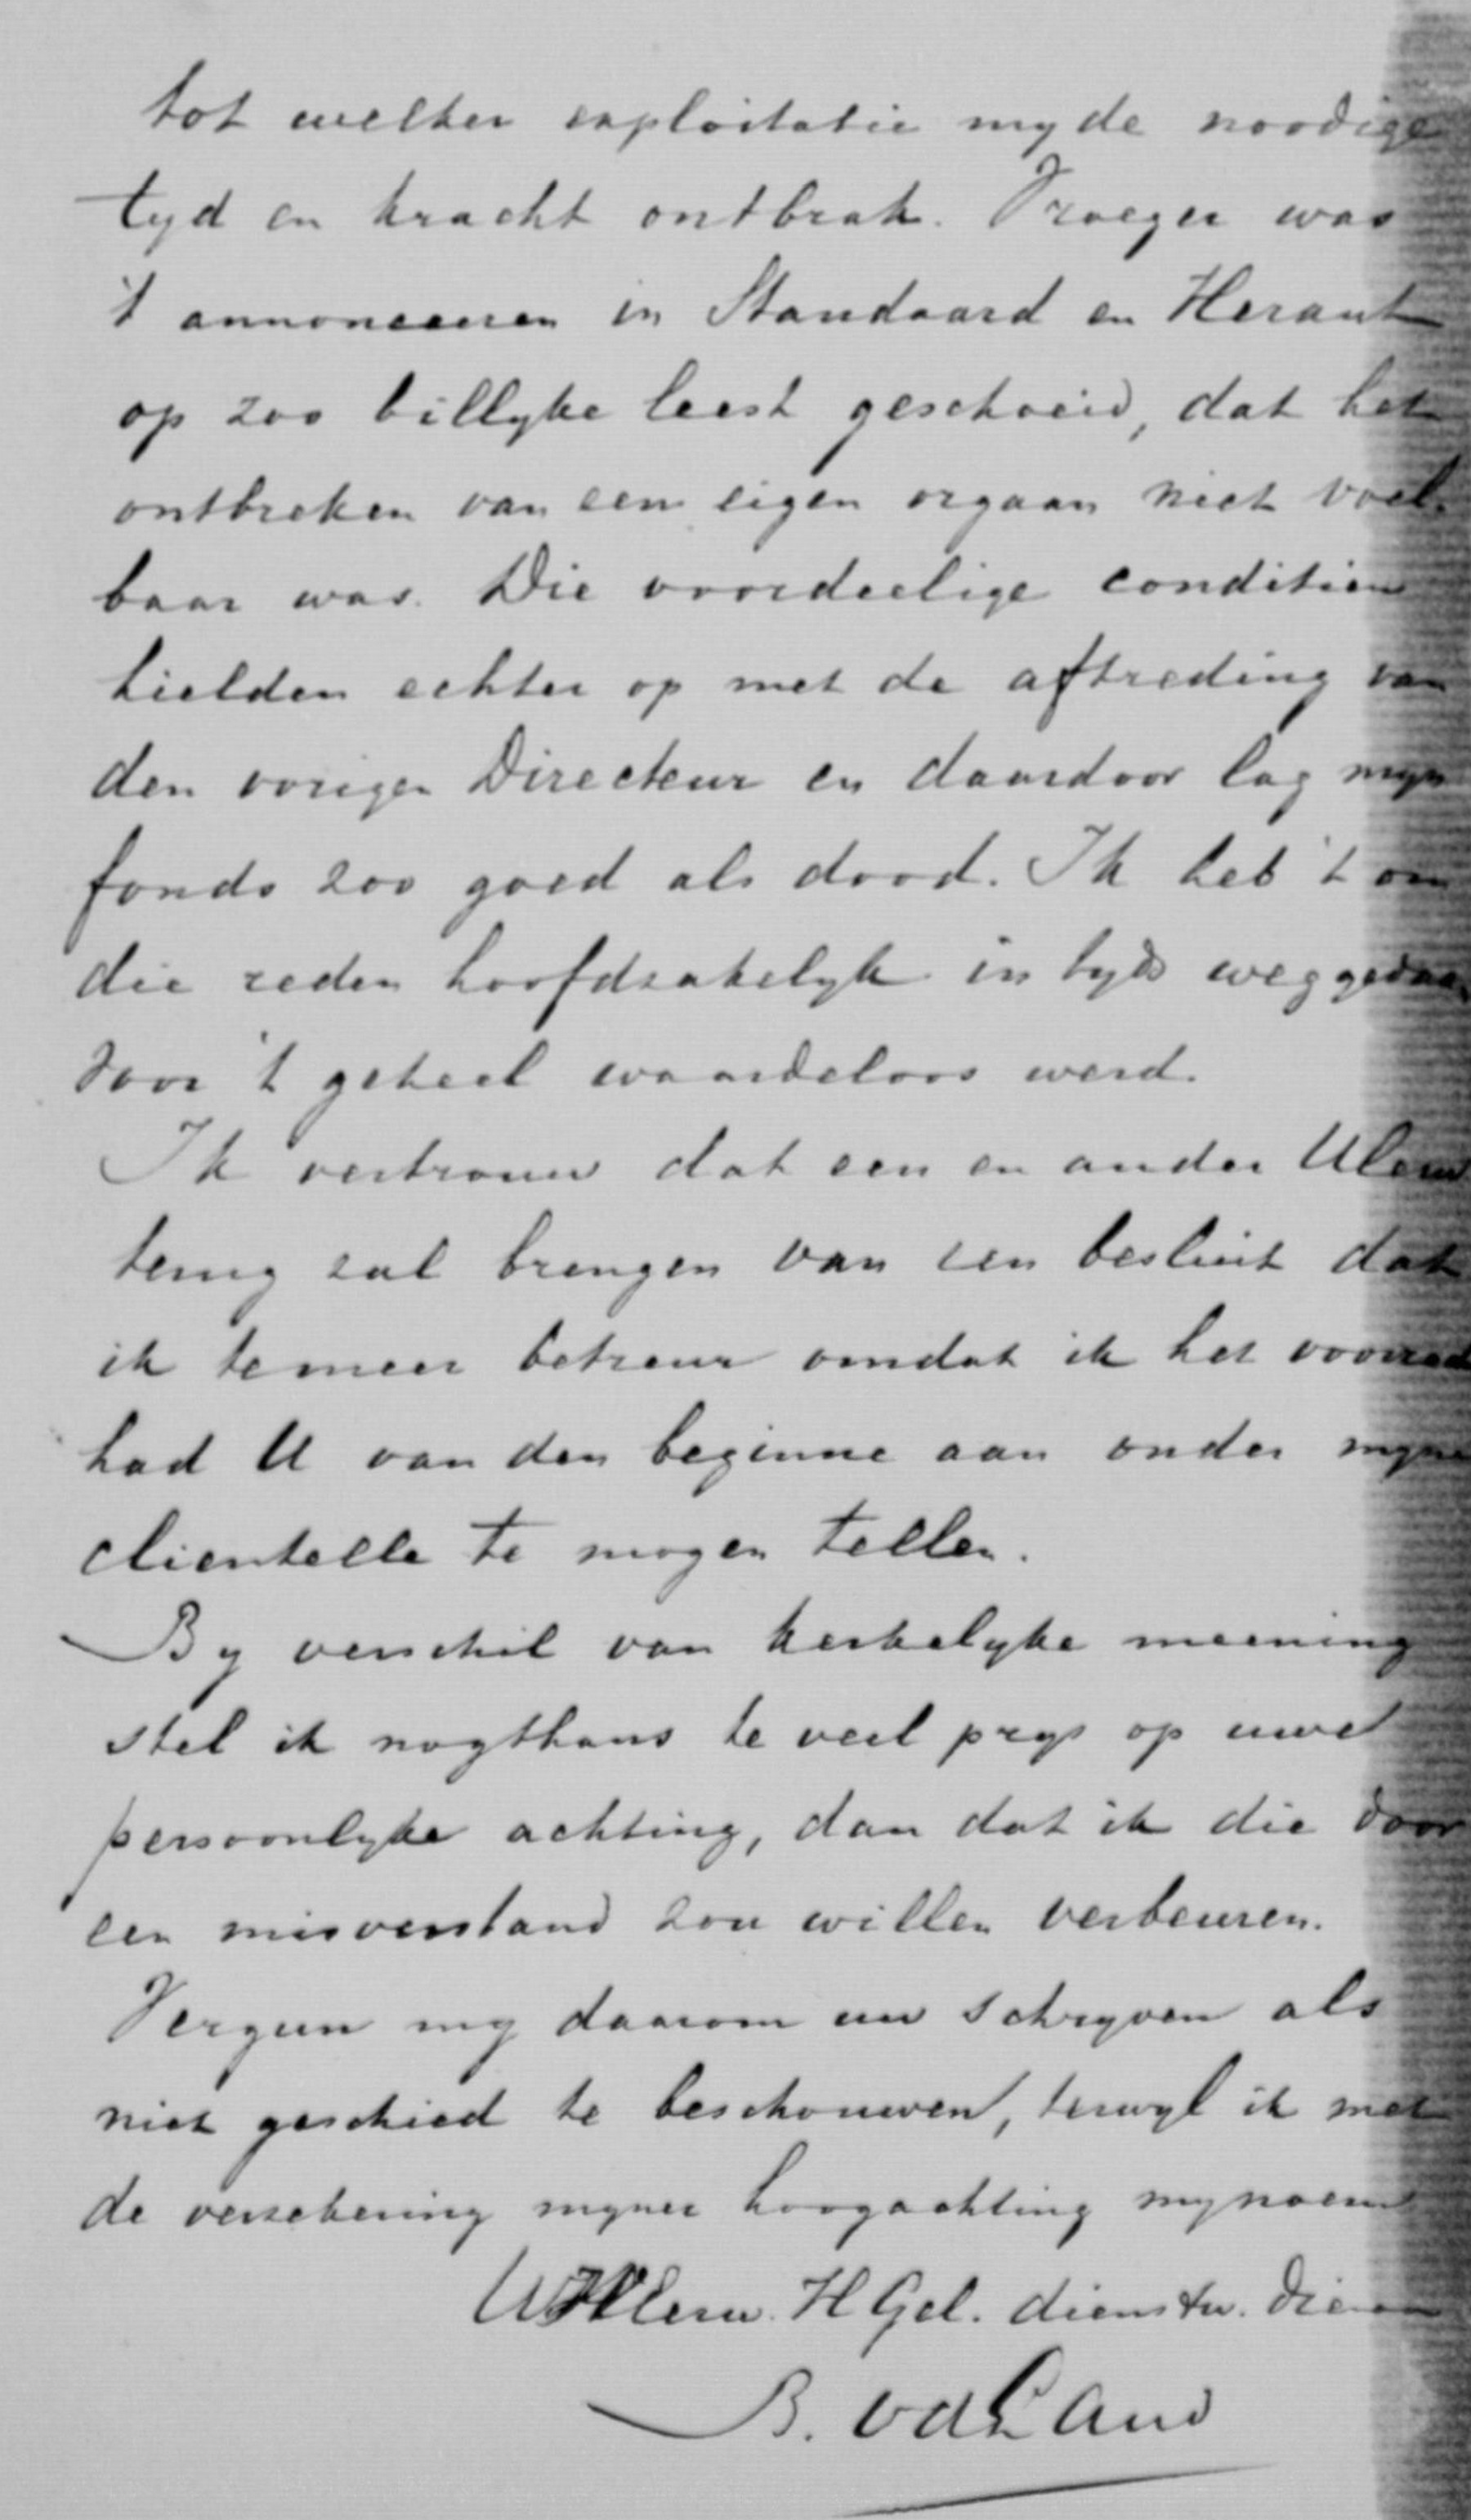 tot welker exploitatie my de noodige
tyd en kracht ontbrak. Vroeger was
't annonceeren in Standaard en Heraut
op zoo billyke leest geschoeid, dat het
ontbreken van een eigen orgaan niet voel-
baar was. Die voordeelige conditien
hielden echter op met de aftreding van
den vorigen Directeur en daardoor lag myn
fonds zoo goed als dood. Ik heb 't om
die reden hoofdzakelyk in tyds weggedaan
voor 't geheel waardeloos werd.
Ik vertrouw dat een en ander UEerw
terug zal brengen van een besluit dat
ik temeer betreur omdat ik het voorrecht
had U van den beginne aan onder myne
clientelle te mogen tellen.
By verschil van kerkelyke meening
stel ik nogthans te veel prys op uwe
persoonlyke achting, dan dat ik die door
een misverstand zou willen verbeuren.
Vergun my daarom uw schryven als
niet geschied te beschouwen, terwyl ik met
de verzekering myner hoogachting my noem
H Gel. dienstw. dienaar
B. vd Land